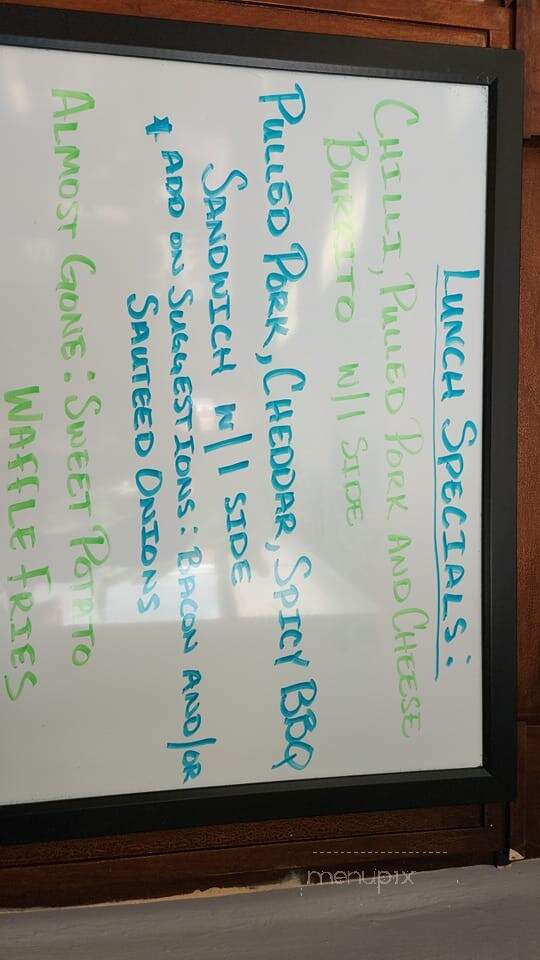 LUNCH SPECIALS:
CHILLI, PULLED PORK AND CHEESE
BURRITO W/1 SIDE
PULLED PORK, CHEDDAR, SPICY BBQ
SANDWICH W/1 SIDE
* ADD ON SUGGESTIONS: BACON AND/OR
SAUTEED ONIONS
ALMOST GONE: SWEET POTATO
WAFFLE FRIES
menupix